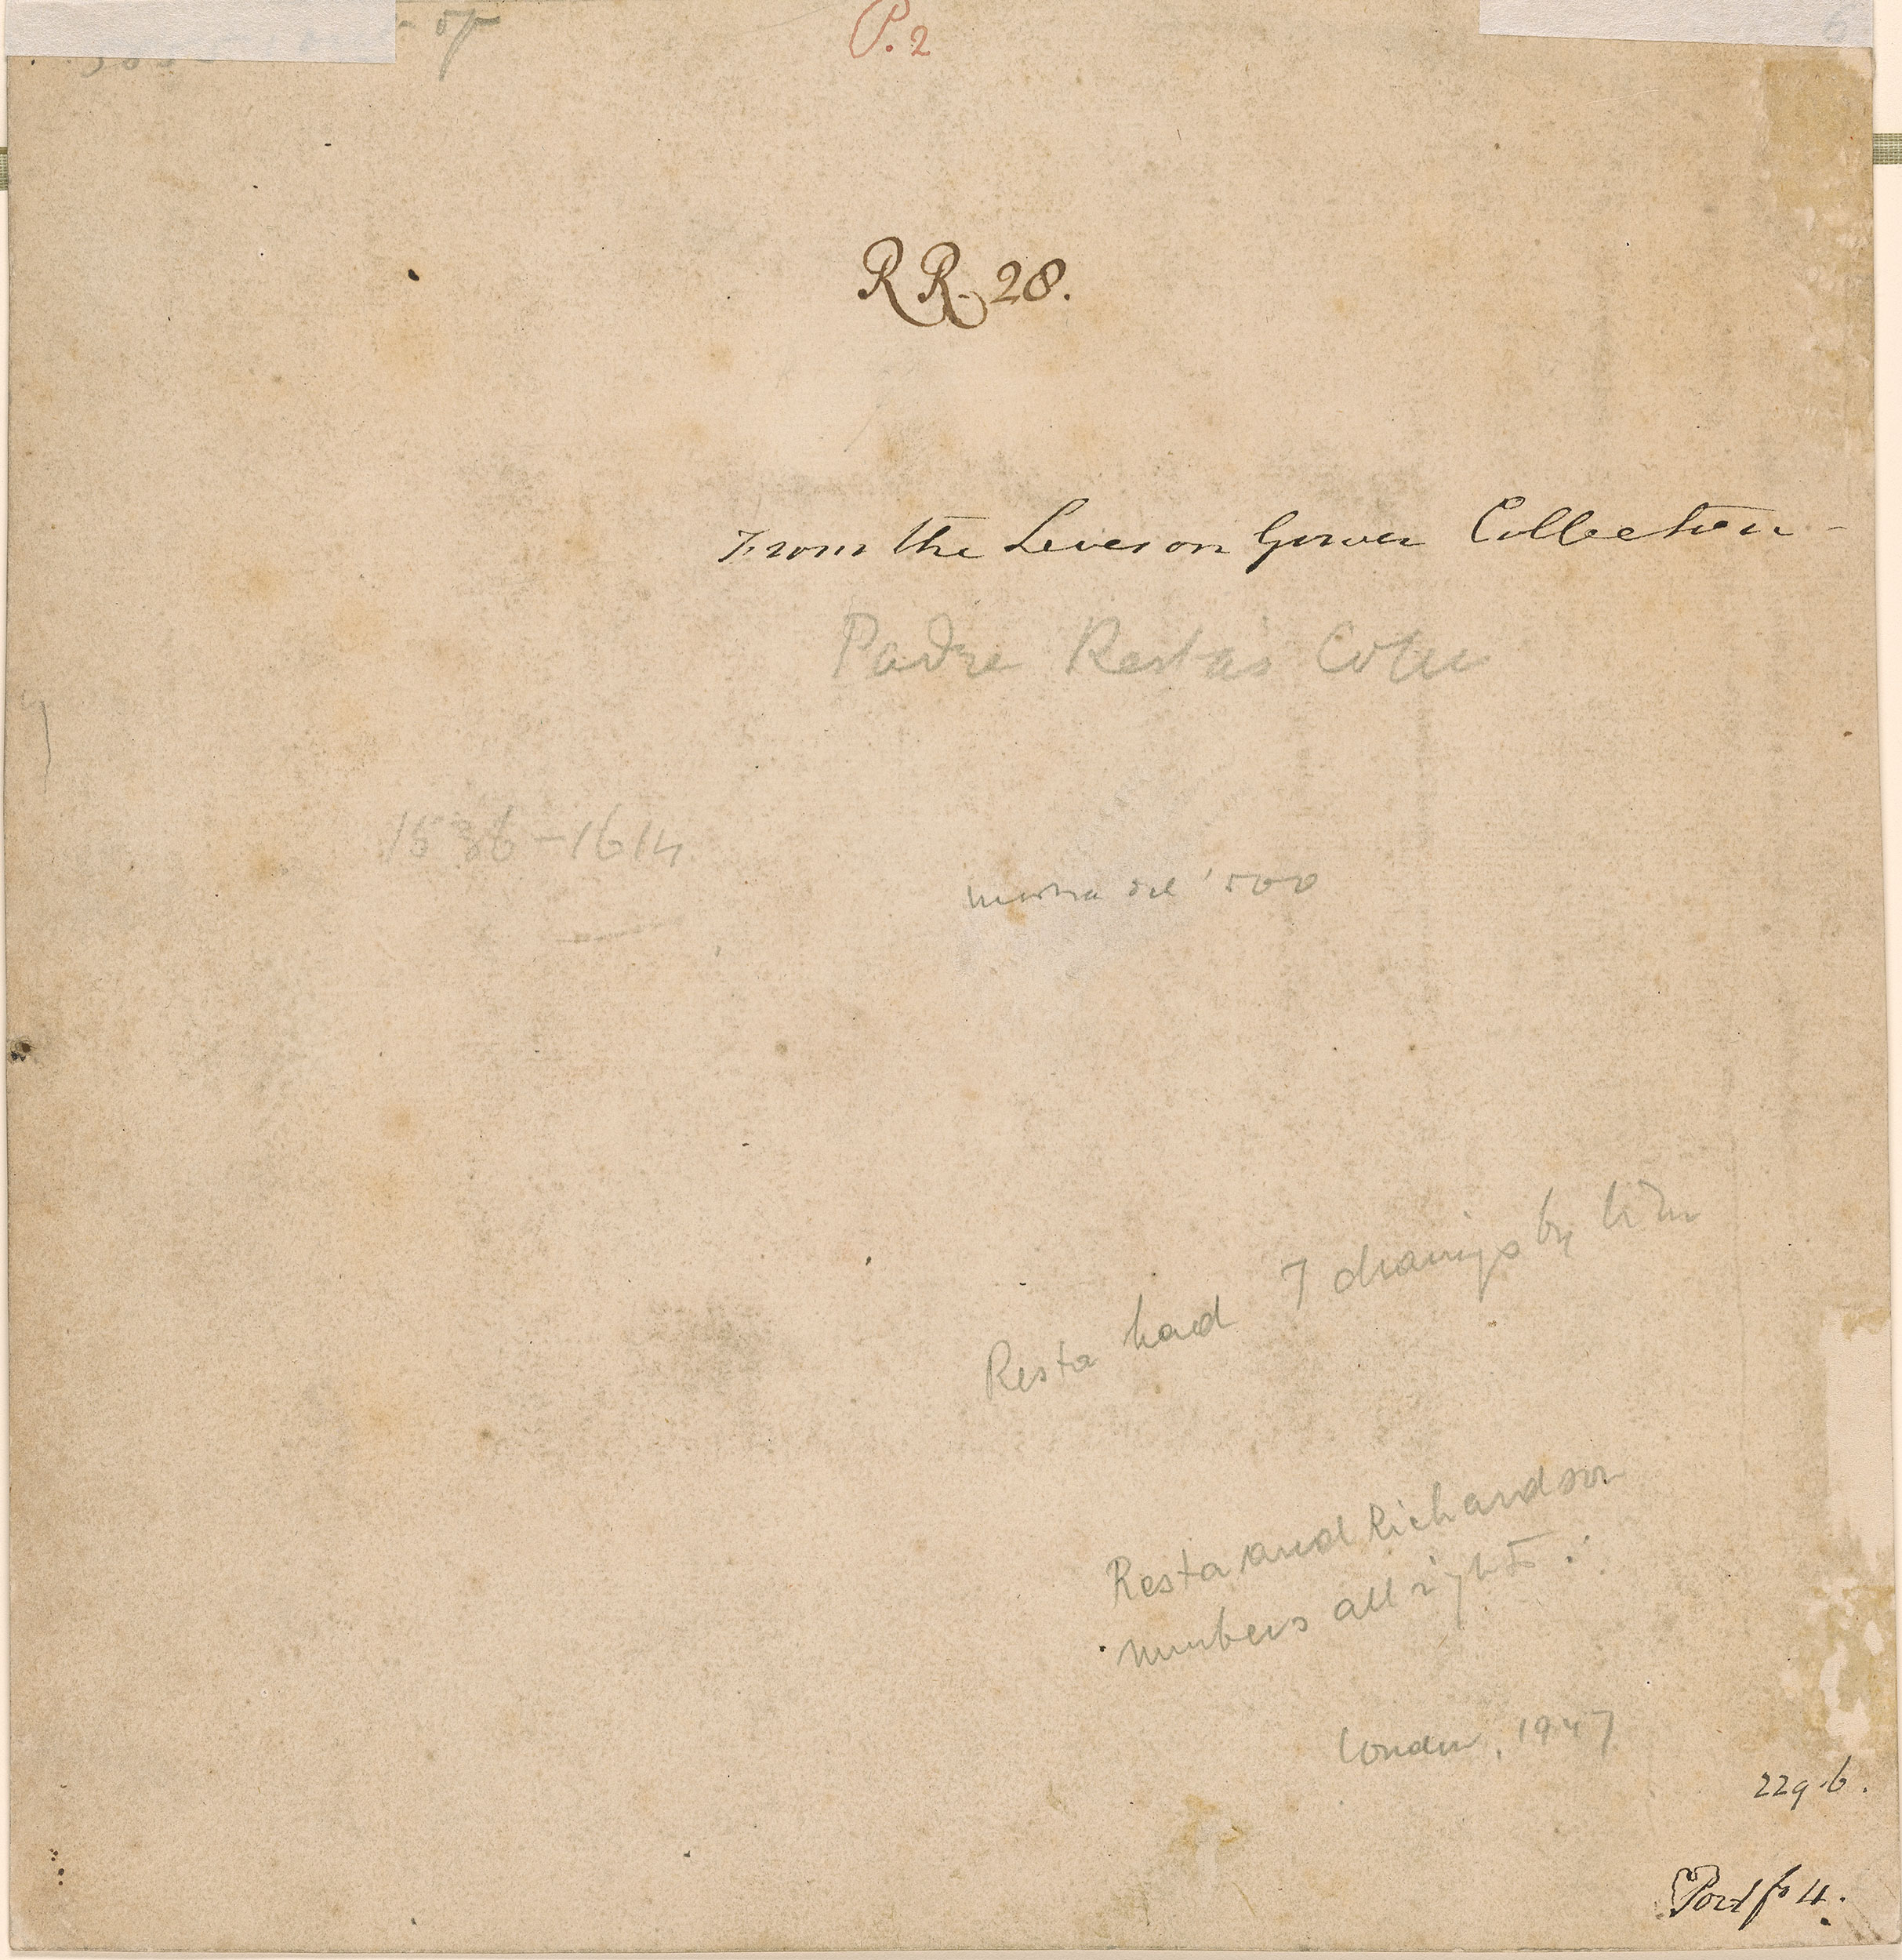 P. 2
RR. 28.
From the Leveson Gower Collection -
Padre Resta's
1536-1614
mostra del '500
Resta had 7 drawings by him
Resta and Richardson
numbers all right
London, 1947
229.b.
Portfo 4.